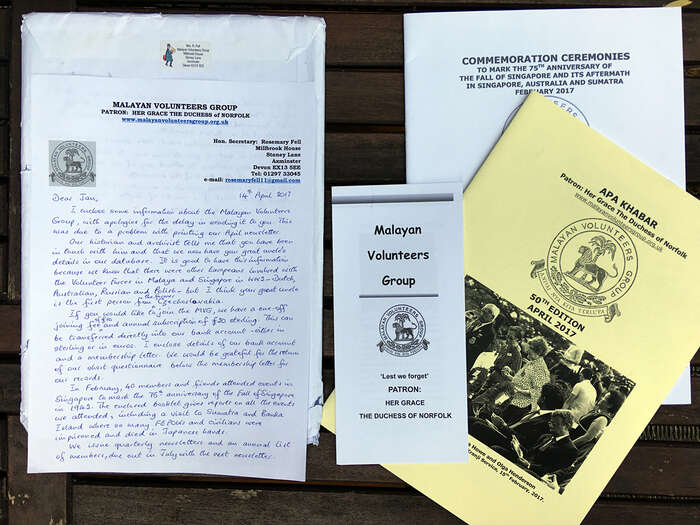 Mrs. R. Fell
Malayan Volunteers Group
Millbrook House
Stoney Lane
Axminster
Devon EX13 5EE
MALAYAN VOLUNTEERS GROUP
PATRON: HER GRACE THE DUCHESS OF NORFOLK
www.malayanvolunteersgroup.org.uk
Hon. Secretary: Rosemary Fell
Millbrook House
Stoney Lane
Axminster
Devon EX13 5EE
Tel: 01297 33045
e-mail: rosemaryfell11@gmail.com
Dear Jan, 14th April 2017
I enclose some information about the Malayan Volunteers
Group, with apologies for the delay in sending it to you. This
was due to a problem with printing our April newsletter.
Our historian and archivist tells me that you have been
in touch with him and that we now have your great uncle's
details in our database. It is good to have this information
because we know that there were other Europeans involved with
the Volunteer Forces in Malaya and Singapore in WW2 - Dutch,
Australian, Russian and Polish - but I think your great uncle
is the first person from the former Czechoslovakia.
If you would like to join the MVG, we have a one-off
joining fee and annual subscription of £20 sterling. This can
be transferred directly into our bank account - either in
sterling or in euros. I enclose details of our bank account
and a membership letter. We would be grateful for the return
of our short questionnaire below the membership letter for
our records.
In February, 60 members and friends attended events in
Singapore to mark the 75th anniversary of the Fall of Singapore
in 1942. The enclosed booklet gives reports on all the events
we attended, including a visit to Sumatra and Banka
Island where so many FEPOWs and civilians were
imprisoned and died in Japanese hands.
We issue quarterly newsletters and an annual list
of members, due out in July with the next newsletter.
Malayan
Volunteers
Group
MALAYAN VOLUNTEERS GROUP
'Lest we forget'
PATRON:
HER GRACE
THE DUCHESS OF NORFOLK
COMMEMORATION CEREMONIES
TO MARK THE 75TH ANNIVERSARY OF
THE FALL OF SINGAPORE AND ITS AFTERMATH
IN SINGAPORE, AUSTRALIA AND SUMATRA
FEBRUARY 2017
APA KHABAR
Patron: Her Grace The Duchess of Norfolk
www.malayanvolunteersgroup.org.uk
MALAYAN VOLUNTEERS GROUP
50TH EDITION
APRIL 2017
Howe and Olga Henderson
Kranji Service, 15th February, 2017.